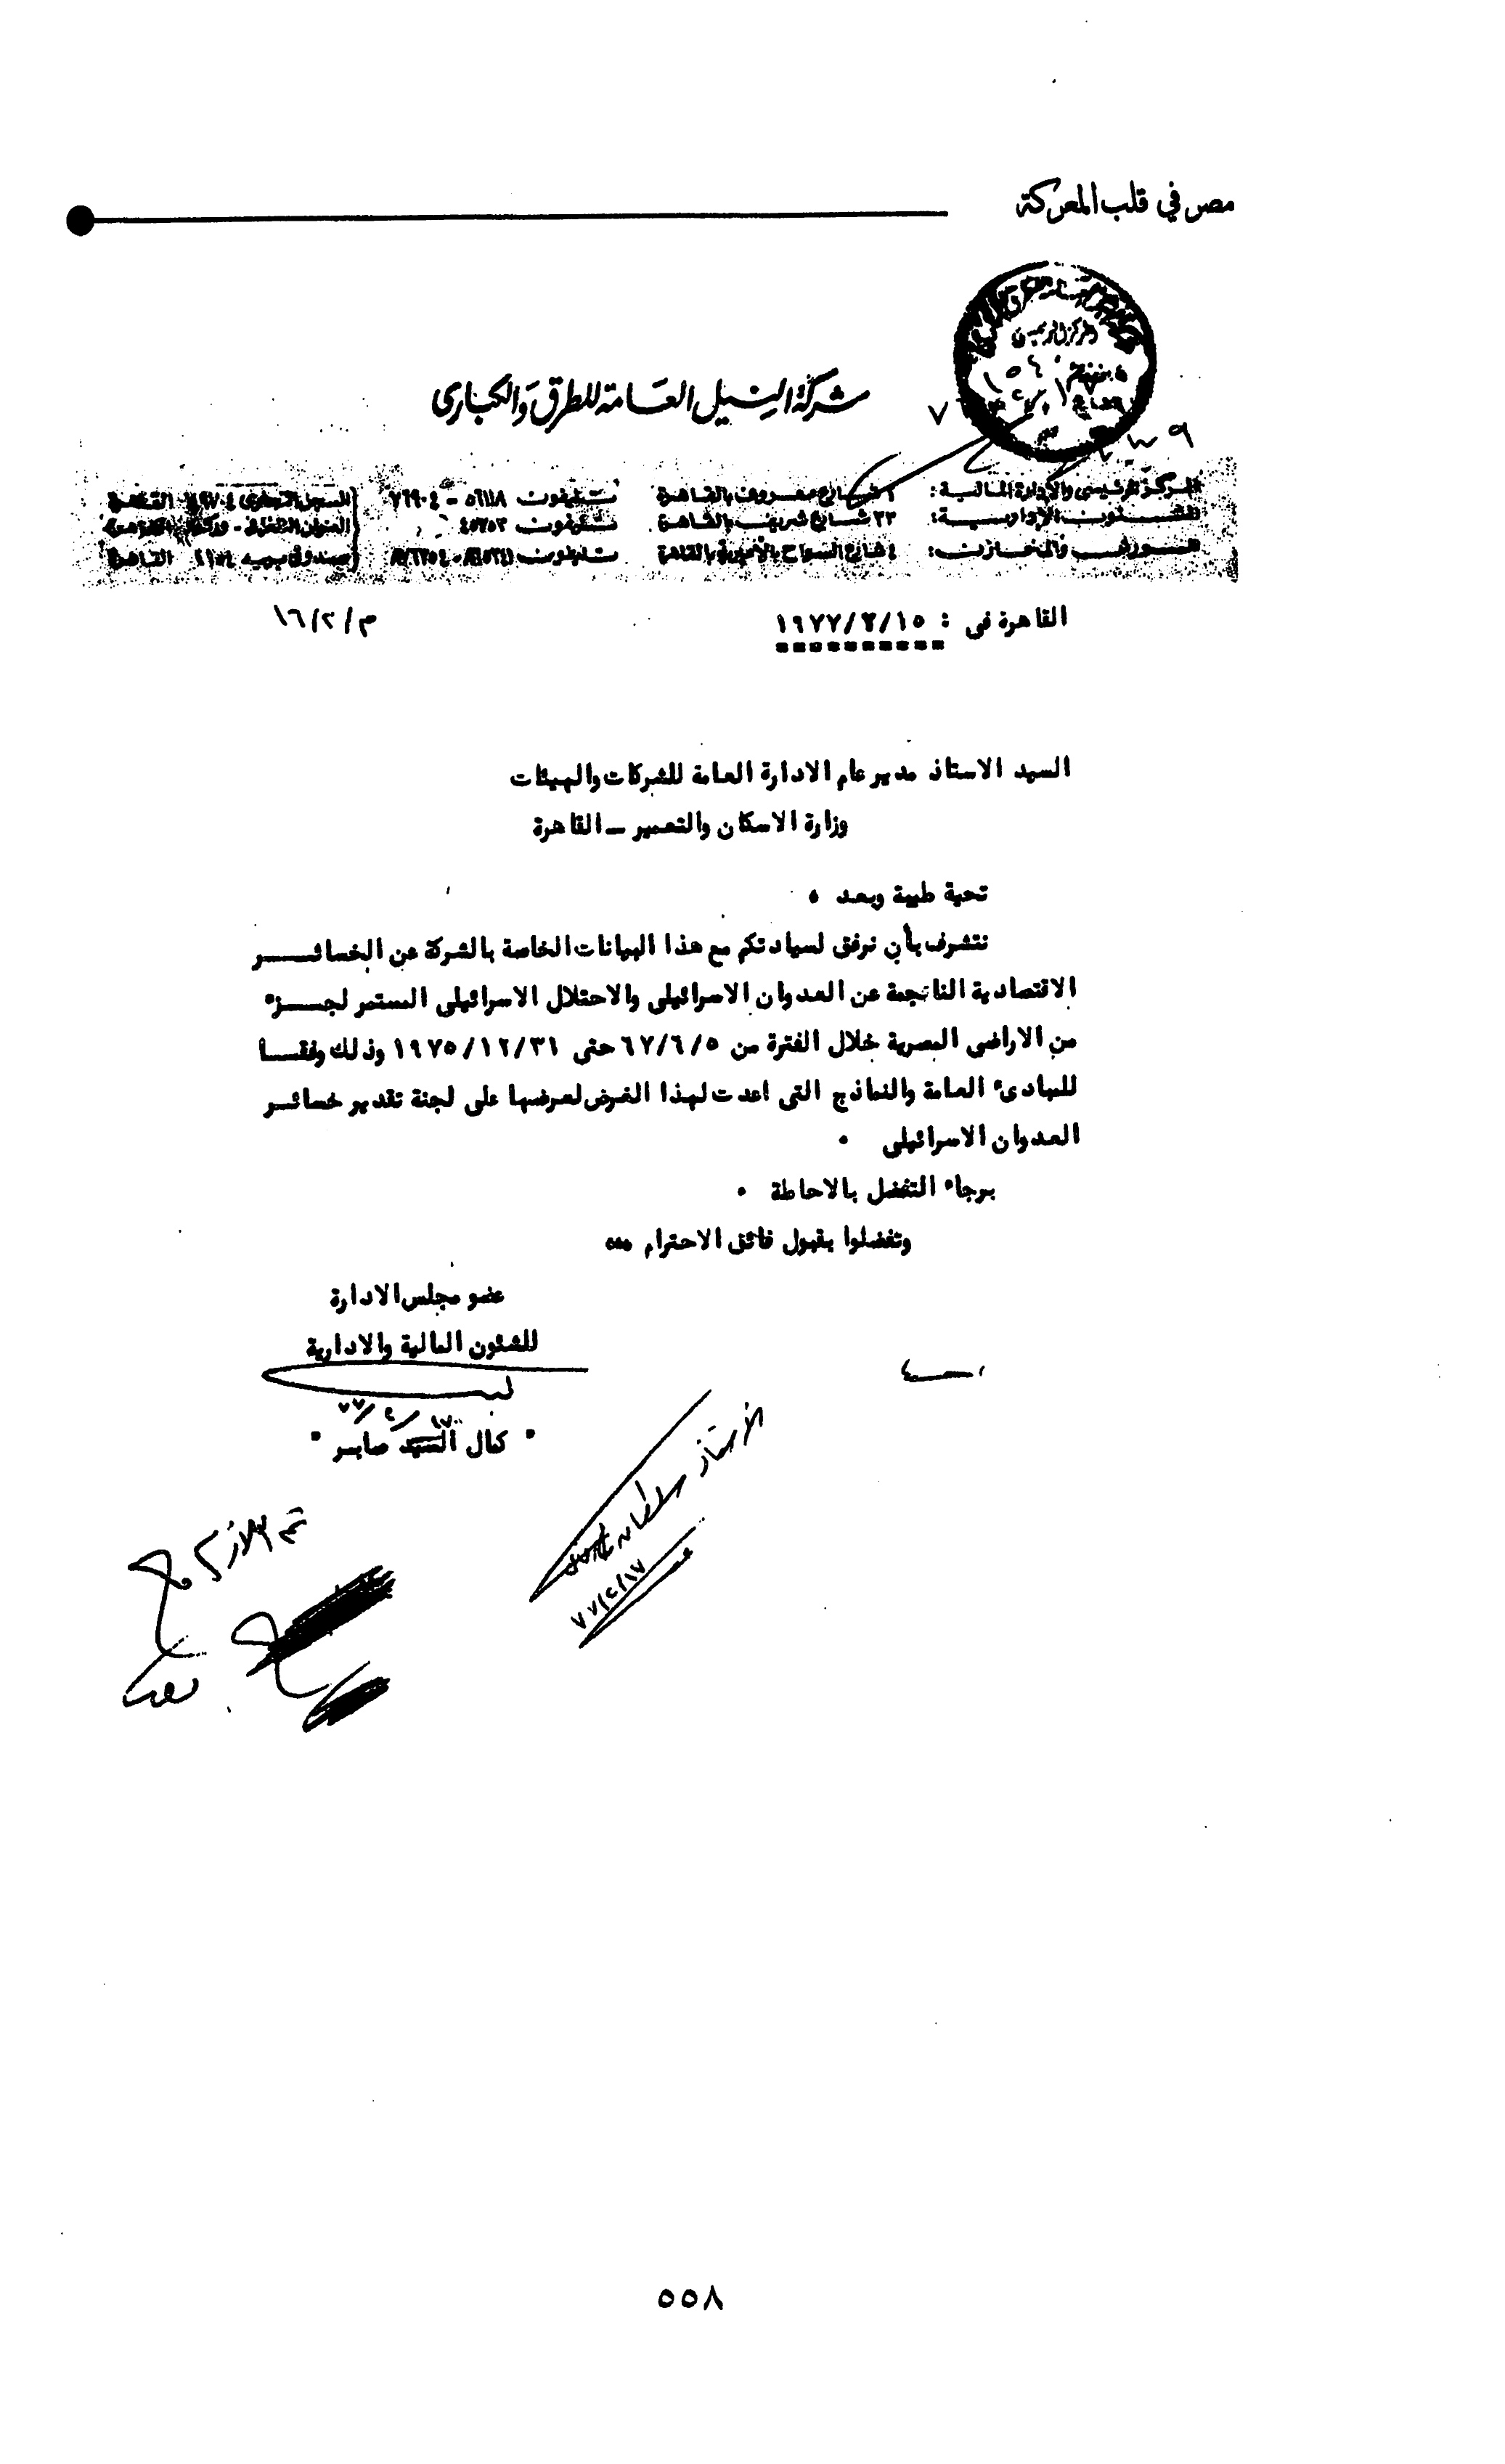 مصر في قلب المعركة
المركز الرئيسى
شركة النيل العامة للطرق والكبارى
المركز الرئيسى والإدارة المالية: شارع معروف بالقاهرة تليفون ٥٦١١٨ - ٧٦٩٠٤ السجل التجارى القاهرة
الشئون الإدارية: ٣٣ شارع شريف بالقاهرة تليفون ٤٥٢٥٣ العنوان التلغرافى القاهرة
الورش والمخازن: ٤ شارع السواح بالأميرية بالقاهرة تليفون صندوق بريد القاهرة
القاهرة فى : ١٩٧٧/٢/١٥ م/٢/١٦
السيد الاستاذ مدير عام الادارة العامة للشركات والهيئات
وزارة الاسكان والتعمير - القاهرة
تحية طيبة وبعد ،
نتشرف بأن نرفق لسيادتكم مع هذا البيانات الخاصة بالشركة عن الخسائر
الاقتصادية الناتجمة عن العدوان الاسرائيلى والاحتلال الاسرائيلى المستمر لجزء
من الاراضى المصرية خلال الفترة من ٦٧/٦/٥ حتى ١٩٧٥/١٢/٣١ وذلك وفقا
للمبادىء العامة والنماذج التى اعدت لهذا الغرض لعرضها على لجنة تقدير خسائر
العدوان الاسرائيلى .
برجاء التفضل بالاحاطة .
وتفضلوا بقبول فائق الاحترام ،،،
عضو مجلس الادارة
للشئون المالية والادارية
" كمال السيد صابر "
الأستاذ
٧٧/٢/١٧
٥٥٨